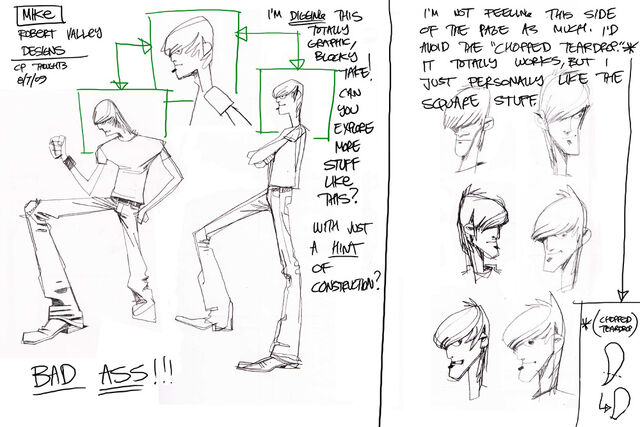 MIKE
ROBERT VALLEY
DESIGNS
CP THOUGHTS
8/7/09
I'M DIGGING THIS
TOTALLY
GRAPHIC,
BLOCKY
TAKE!
CAN
YOU
EXPLORE
MORE
STUFF
LIKE
THIS?
WITH JUST
A HINT
OF
CONSTRUCTION?
BAD ASS!!!
I'M NOT FEELING THIS SIDE
OF THE PAGE AS MUCH. I'D
AVOID THE "CHOPPED TEARDROP."*
IT TOTALLY WORKS, BUT I
JUST PERSONALLY LIKE THE
SQUARE STUFF
* (CHOPPED
TEARDROP)